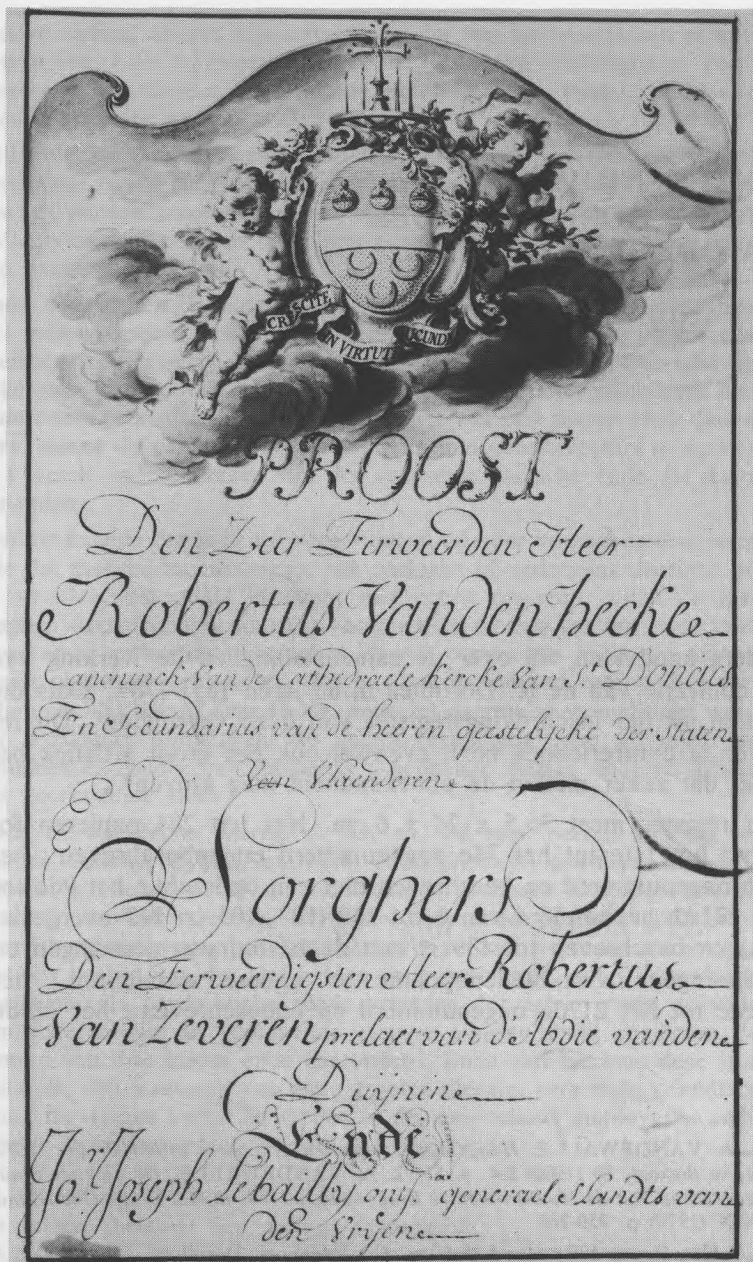 CRESCITE
IN VIRTUT
PROOST
Den Zeer Eerweerden Heer
Robertus Vanden hecke
Canoninck van de Cathedraele kercke van St Donas
En Secundarius van de heeren geestelijcke der staten
van Vlaenderen
Sorghers
Den Eerweerdigsten Heer Robertus
Van Severen prelaet van d'Abdie vanden
Duijnen
Ende
Jor Joseph Lebailly ontf generael slandts van
den Vrijen